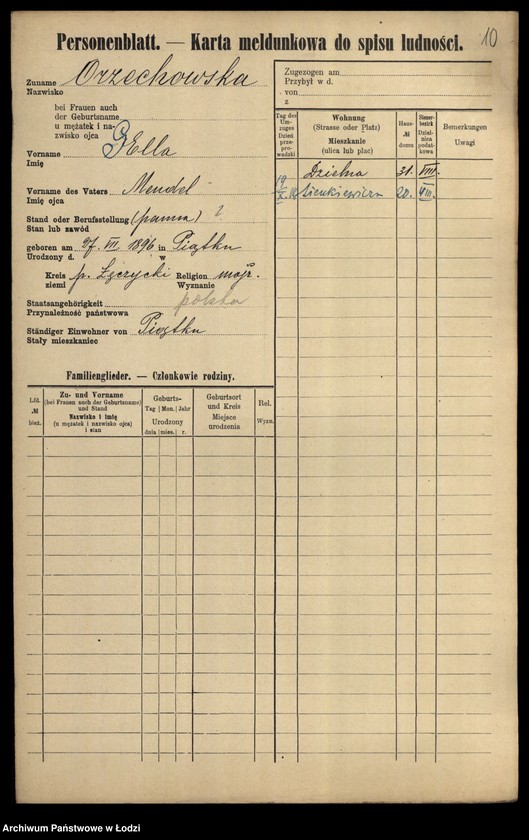 10
Personenblatt. — Karta meldunkowa do spisu ludności.
Zuname Orzechowska
Nazwisko
bei Frauen auch
der Geburtsname
u mężatek i na-
zwisko ojca
Vorname Ella
Imię
Vorname des Vaters Mendel
Imię ojca
Stand oder Berufsstellung (panna)
Stan lub zawód
geboren am 27. VII. 1896 in Piątku
Urodzony d. w
Kreis p. Łęczycki Religion mojż.
ziemi Wyznanie
Staatsangehörigkeit polska
Przynależność państwowa
Ständiger Einwohner von Piątku
Stały mieszkaniec
Familienglieder. — Członkowie rodziny.
Lfd. № bież.
Zu- und Vorname
(bei Frauen auch der Geburtsname)
und Stand
Nazwisko i imię
(u mężatek i nazwisko ojca)
i stan
Geburts-
Tag Mon. Jahr
Urodzony
dnia mies. r.
Geburtsort
und Kreis
Miejsce
urodzenia
Rel.
Wyzn.
Zugezogen am
Przybył w d.
von
z
Tag des Um-zuges
Dzień prze-prowadzki
Wohnung
(Strasse oder Platz)
Mieszkanie
(ulica lub plac)
Haus-
№
domu
Steuer-bezirk
Dzielnica podatkowa
Bemerkungen
Uwagi
Dzielna 31. VIII.
19/X. Sienkiewicza 20.
Archiwum Państwowe w Łodzi